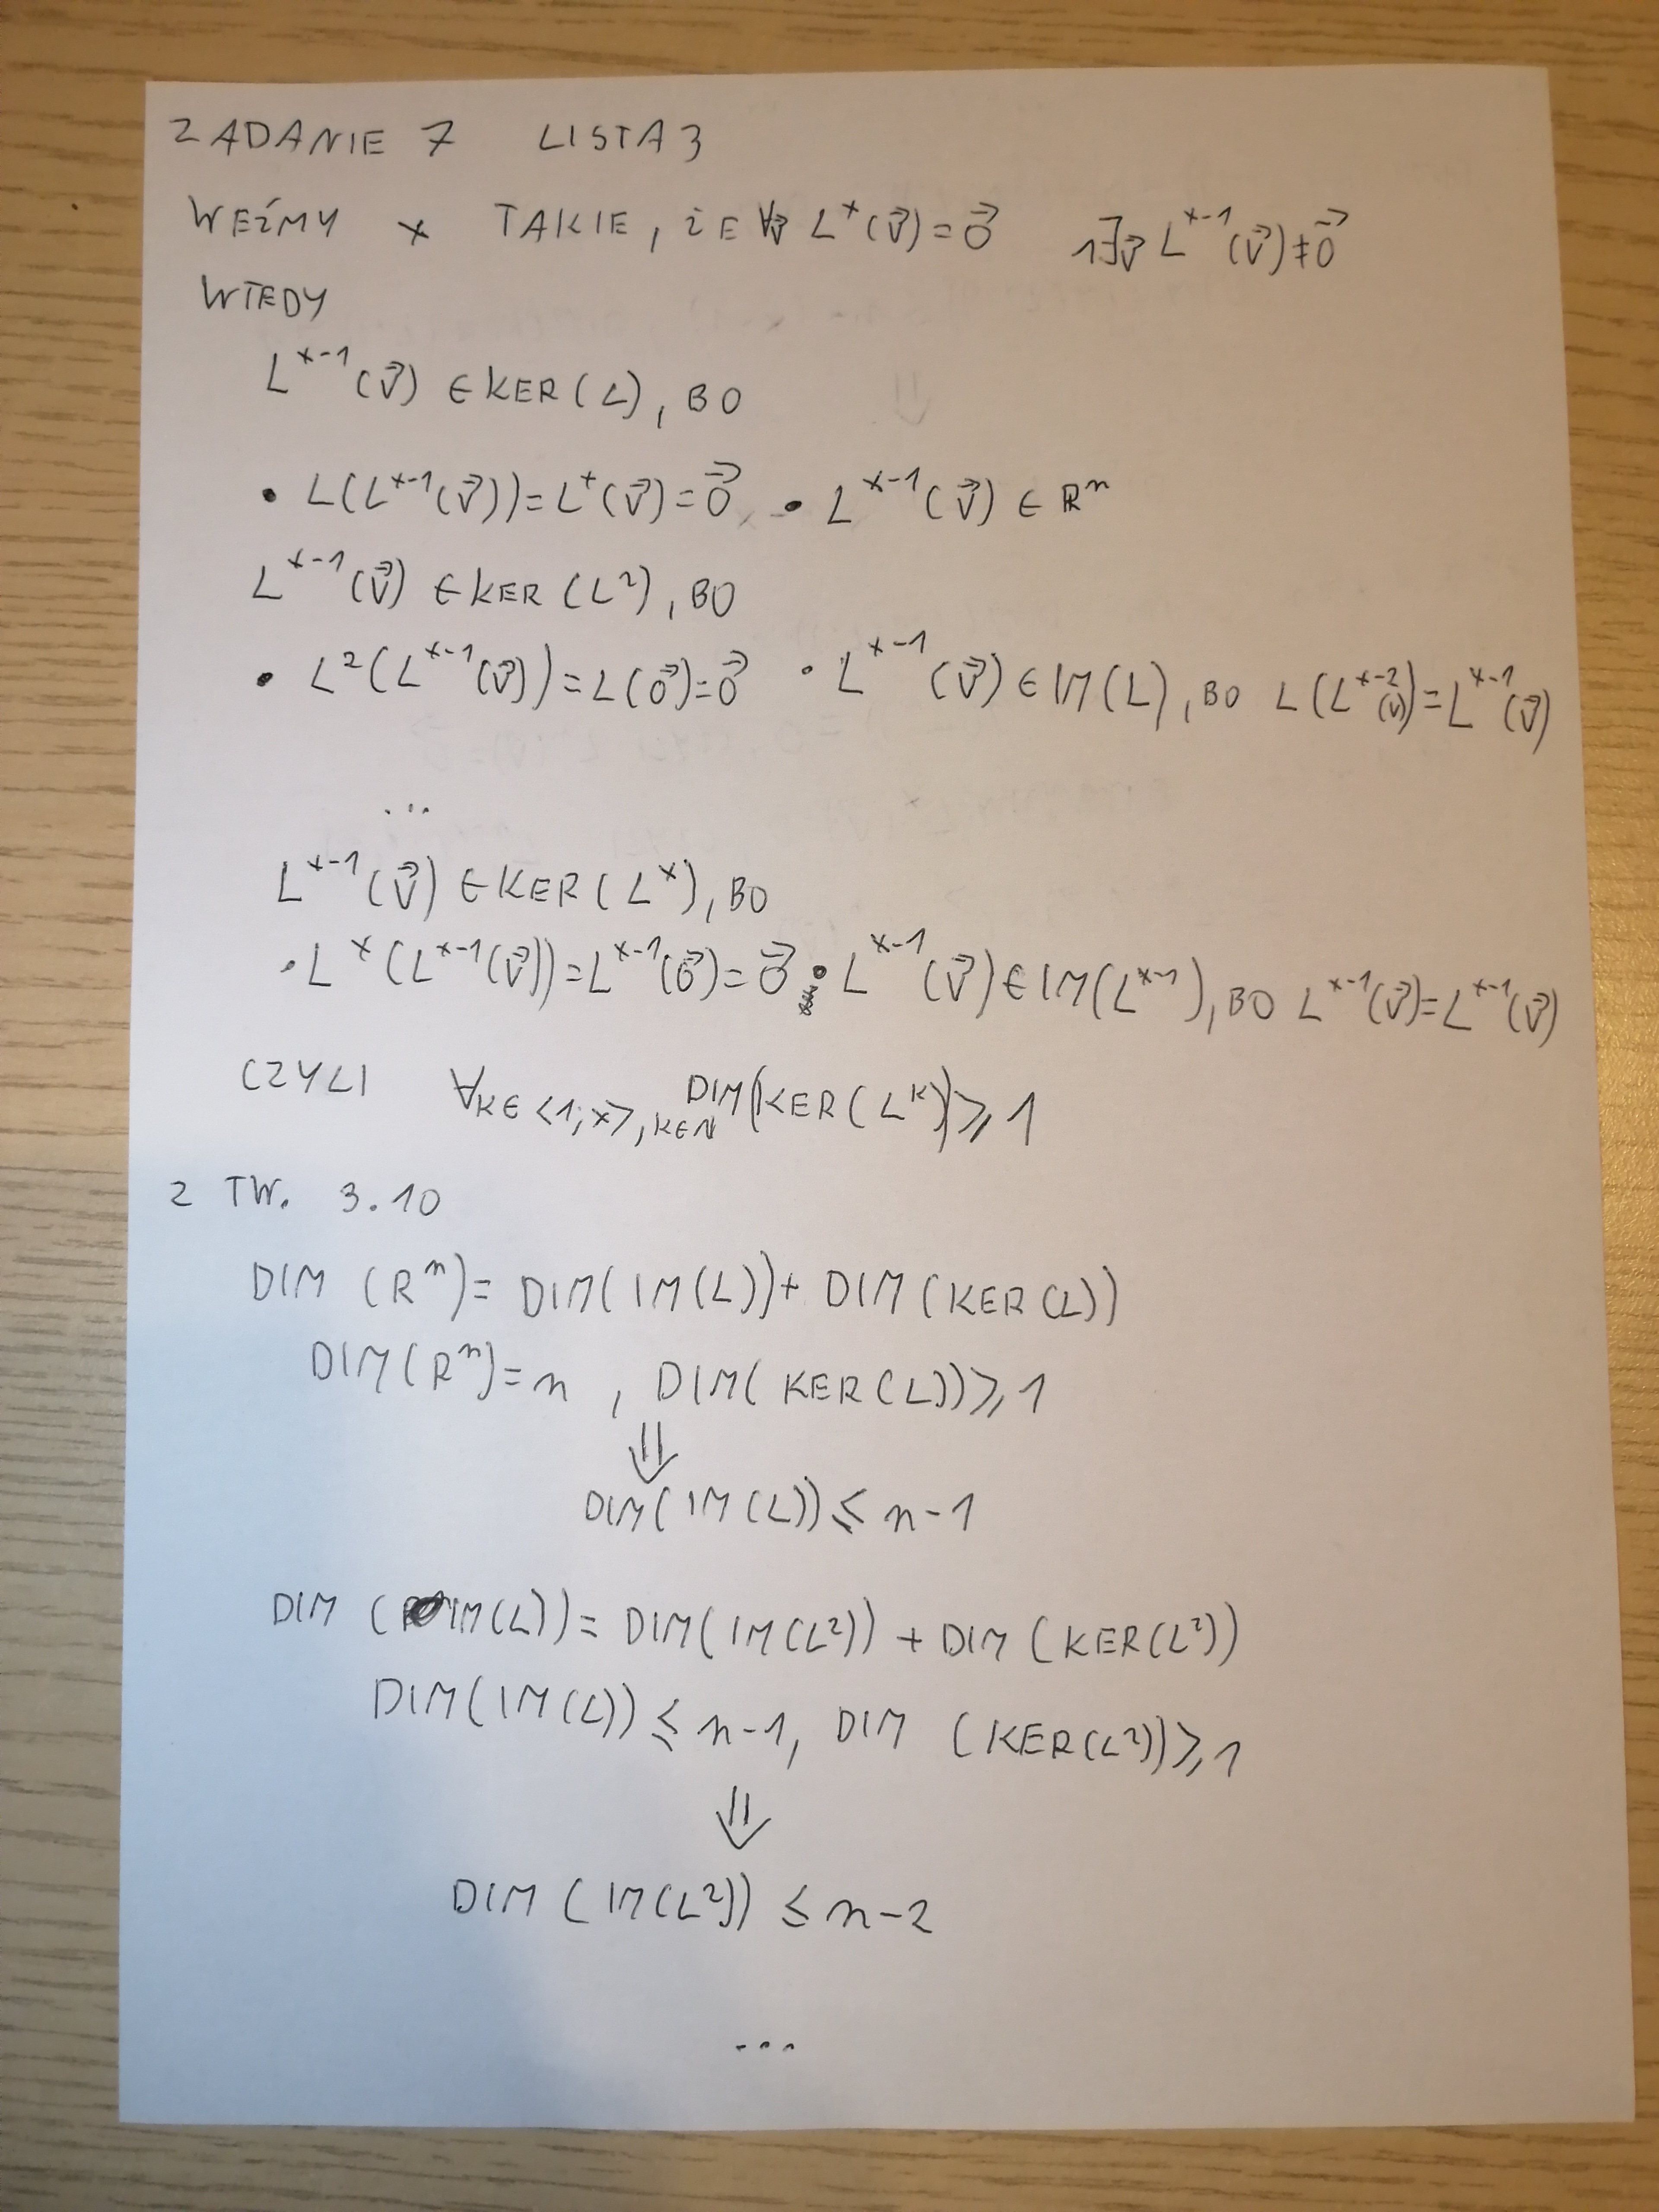 ZADANIE 7 LISTA 3
WEŹMY x TAKIE, ŻE ∀v⃗ L^x(v⃗)=0⃗ 1∃v⃗ L^{x-1}(v⃗)≠0⃗
WTEDY
L^{x-1}(v⃗) ∈ KER(L), BO
• L(L^{x-1}(v⃗))=L^x(v⃗)=0⃗ • L^{x-1}(v⃗) ∈ ℝ^n
L^{x-1}(v⃗) ∈ KER(L²), BO
• L²(L^{x-1}(v⃗))=L(0⃗)=0⃗ • L^{x-1}(v⃗) ∈ IM(L), BO L(L^{x-2}(v))=L^{x-1}(v⃗)
...
L^{x-1}(v⃗) ∈ KER(L^x), BO
• L^x(L^{x-1}(v⃗))=L^{x-1}(0⃗)=0⃗ • L^{x-1}(v⃗) ∈ IM(L^{x-1}), BO L^{x-1}(v⃗)=L^{x-1}(v⃗)
CZYLI ∀_{K∈<1;x>, K∈N} DIM(KER(L^K))≥1
Z TW. 3.10
DIM (R^n)= DIM(IM(L))+ DIM(KER(L))
DIM(R^n)=n , DIM(KER(L))≥1
⇓
DIM(IM(L))≤ n-1
DIM (IM(L))= DIM(IM(L²)) + DIM (KER(L²))
DIM(IM(L))≤ n-1, DIM (KER(L²))≥1
⇓
DIM (IM(L²)) ≤ n-2
...